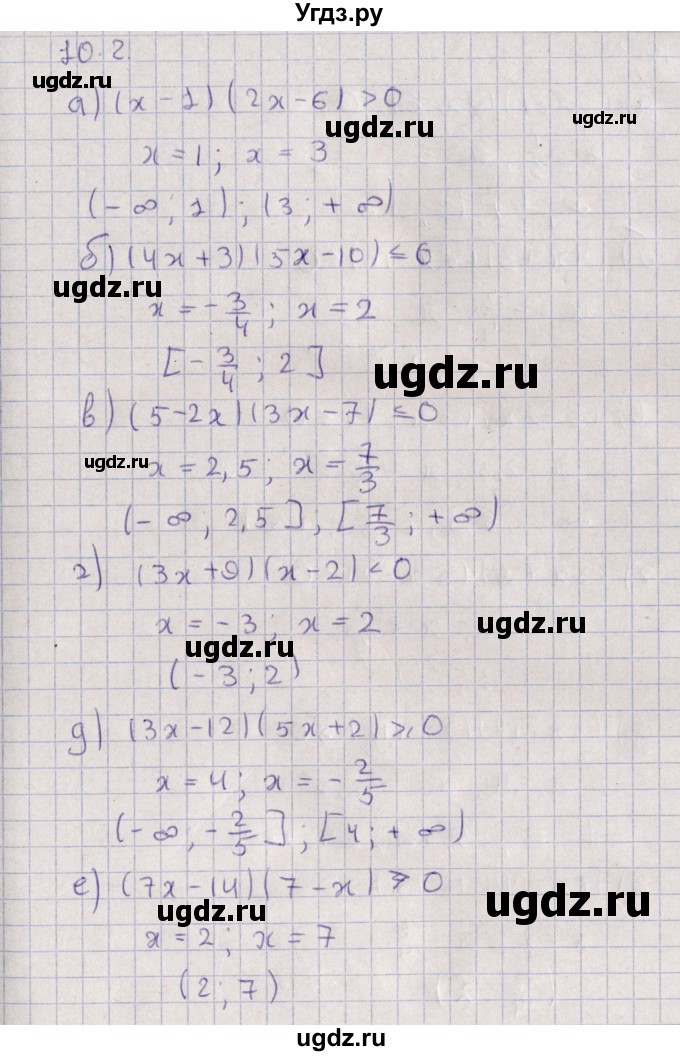 Угдз.ру
10.2.
ugdz.ru
а) (x-1)(2x-6) >0
ugdz.ru
ugdz.ru
x=1; x=3
ugdz.ru
(-∞; 1); (3; +∞)
б) (4x+3)(5x-10) ≤ 6
ugdz.ru
x = -3/4; x=2
[-3/4; 2]
ugdz.ru
в) (5-2x)(3x-7) ≤0
ugdz.ru
x = 2,5; x = 7/3
(-∞, 2,5]; [7/3; +∞)
г) (3x+9)(x-2) <0
x = -3; x=2
ugdz.ru
ugdz.ru
(-3; 2)
д) (3x-12)(5x+2) ≥ 0
x = 4; x = -2/5
(-∞, -2/5]; [4; +∞)
е) (7x-14)(7-x) > 0
ugdz.ru
ugdz.ru
x = 2; x = 7
(2; 7)
ugdz.ru